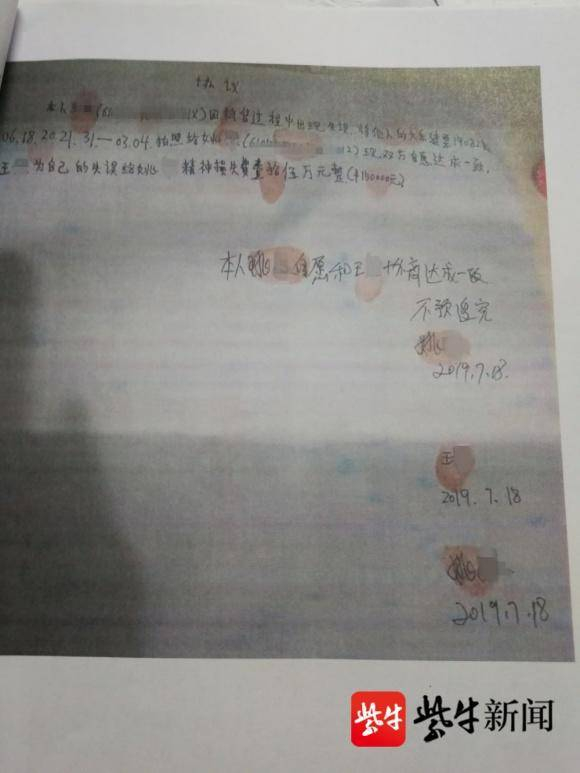 协议
本人王(61 X)因销售过程中出现失误,将他人的大乐透票19082期
06.18.20.21.31—03.04.拍照给姚(610 2)现双方自愿达成一致,
王 为自己的失误给姚 精神损失费壹拾伍万元整(¥150000元)
本人姚 自愿和王 协商达成一致
不予追究
姚
2019.7.18.
王
2019.7.18
姚
2019.7.18
紫牛 紫牛新闻